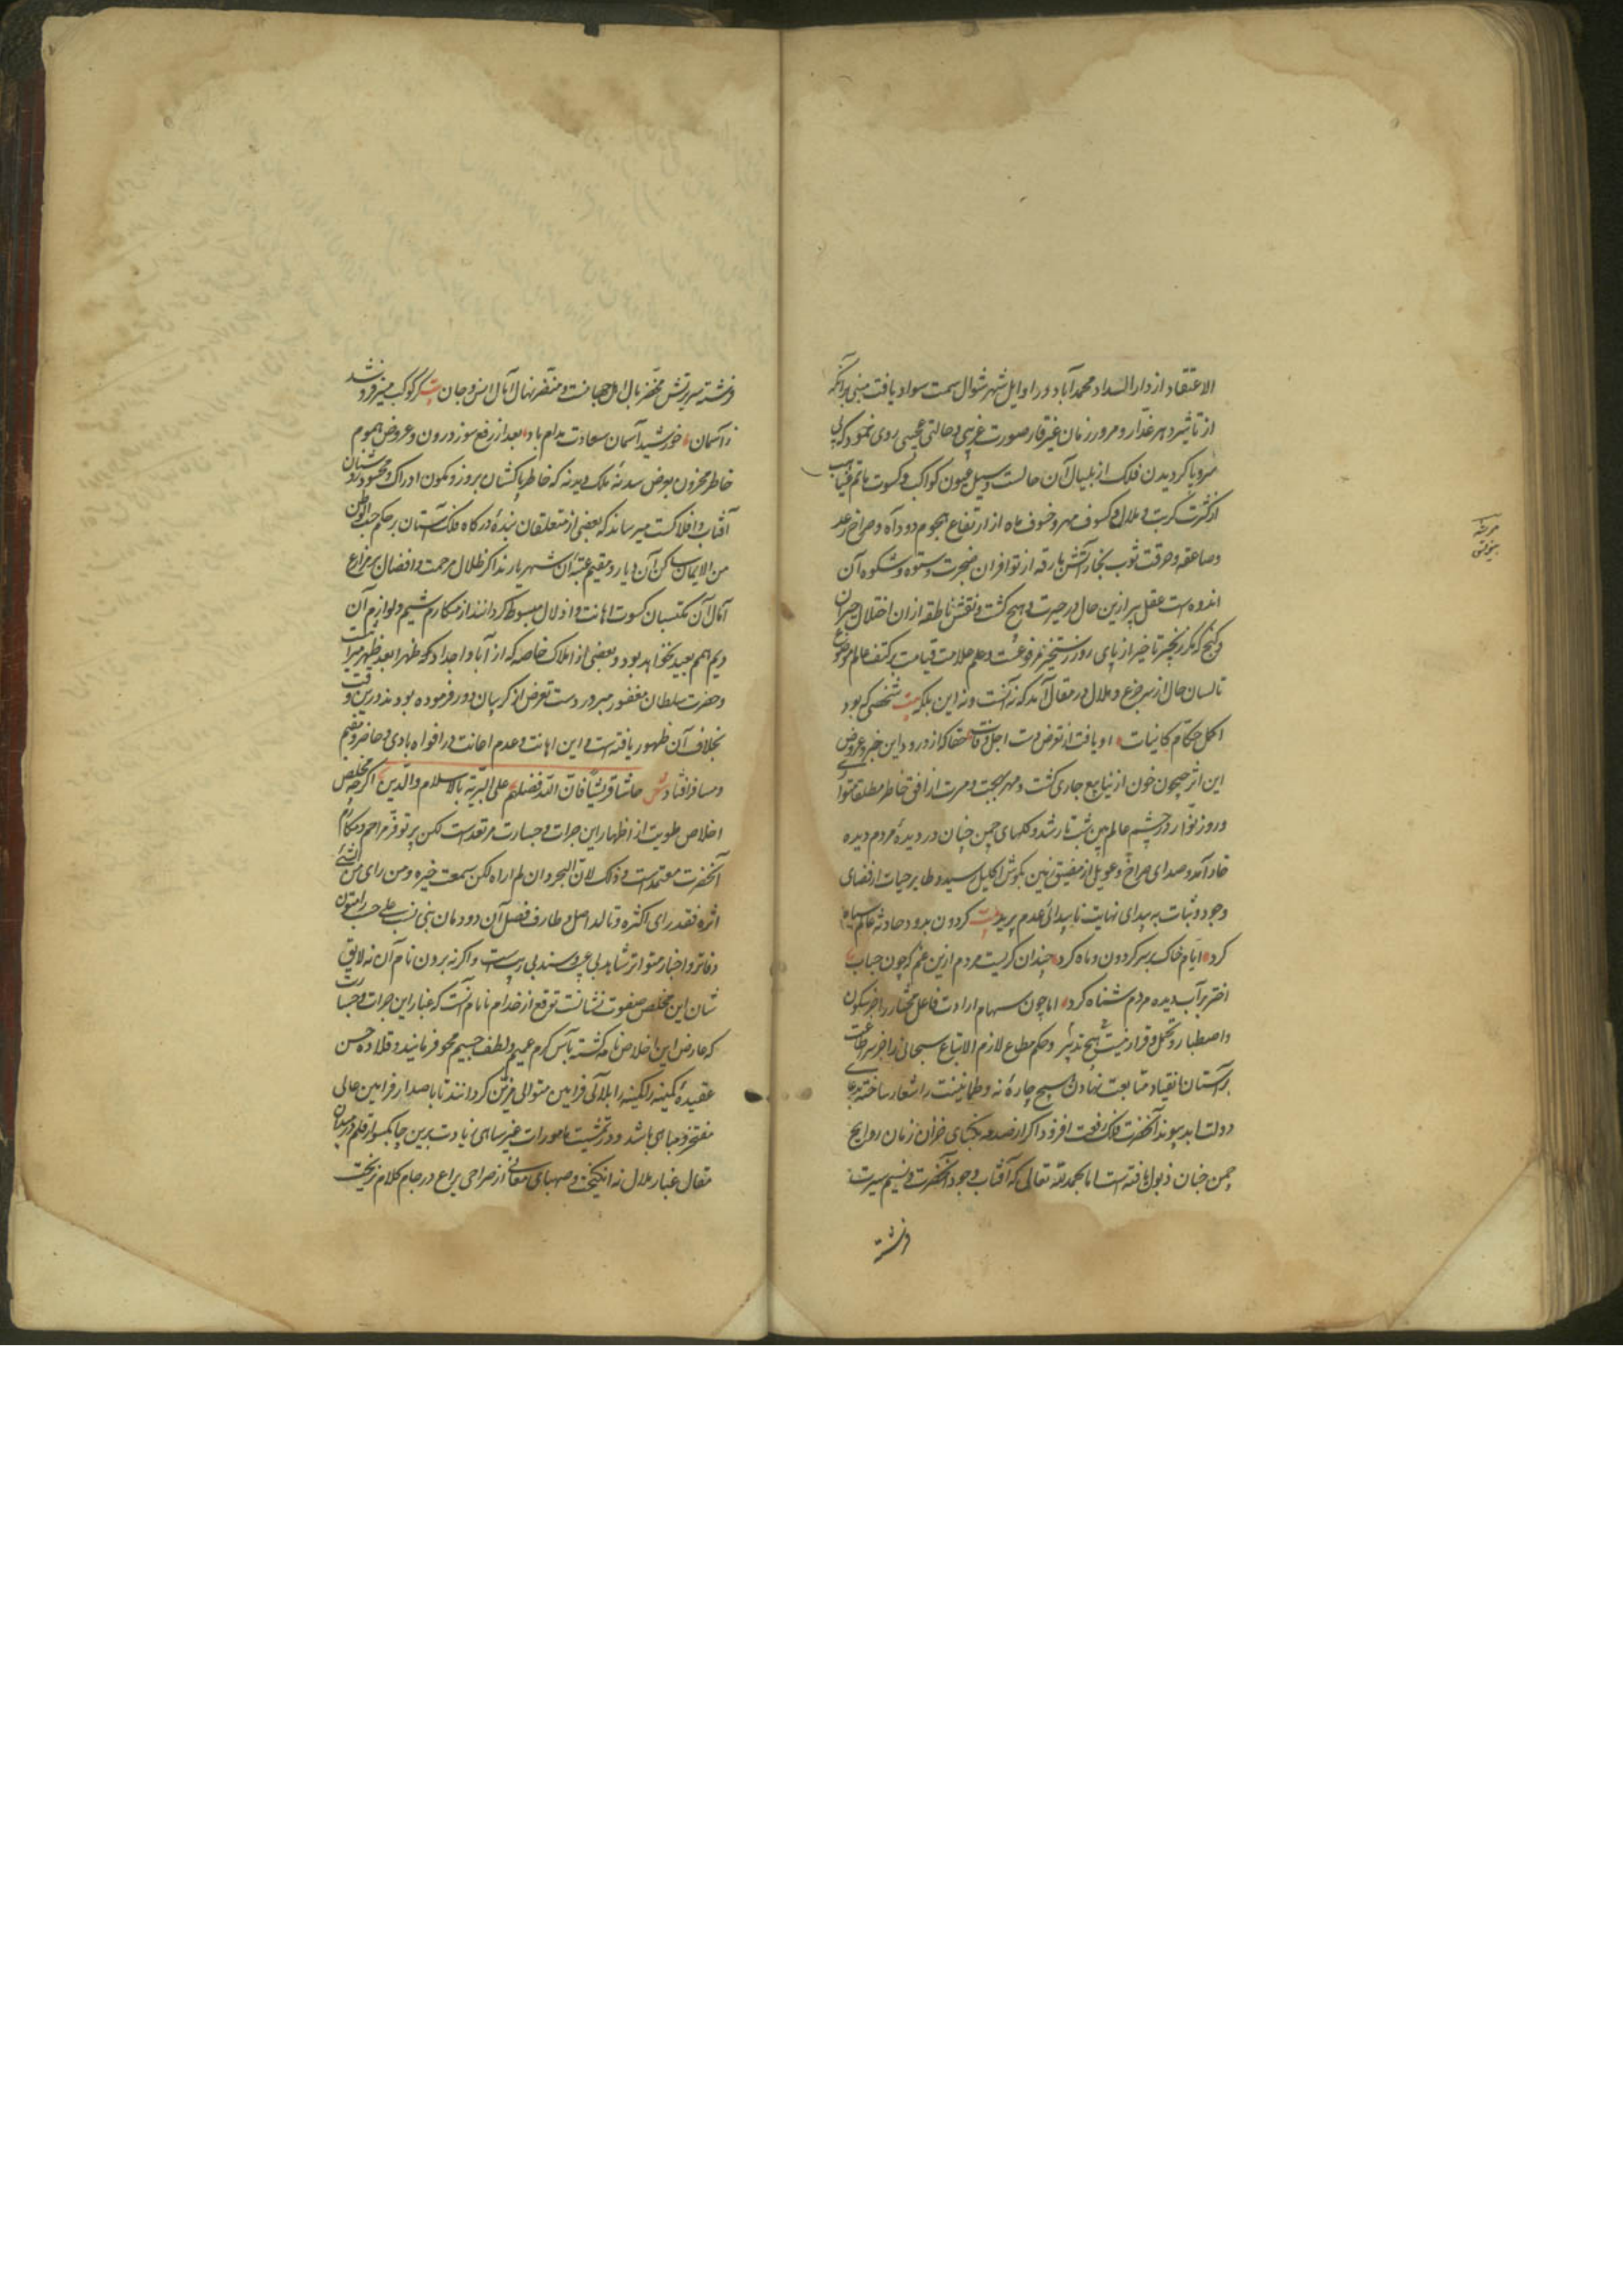 الاعتقاد از دار السداد محمدآباد در اوایل شهر شوال سمت سواد یافت مبنی برآنکه
از تاثیر دهر غدّار و مرور زمان غیر قار صورت غریبی و حالتی عجیبی روی نمود که
کردیدن فلک از آن حالست و سیل عیون کواکب و کسوت ماتم
از کثرت کربت و ملال و کسوف مهر و خسوف ماه از ارتفاع هجوم دود آه و صراخ رعد
و صاعقه و حرقت ثوب بخار آتش بارقه از توافر ان ضجرت و ستوه و شکوه آن
اندوه است عقل پیر ازین حال در حیرت هیچ کشت و نقش ناطقه از ان اختلال حیران
و کنج که مکر زنجیر تاخیر از پای روز رستخیز مرفوعست و علم علامت قیامت بر کتف عالم موضوع
تا لسان حال از سر جزع و ملال در مقال آمد که نه آنست و نه این بلکه بیت شخصی که بود
اکمل حکام کائنات او یافت از تعرض دست اجل وفات حقا که از ورود این خبر و عروض
این اثر جیحون خون از ینابیع جاری کشت و مهر بهجت و مسرت از افق خاطر مطلقا متواری
و روز نوار در چشم عالم بین شب تار شد و کلهای چمن جنان در دیدهٔ مردم دیده
خار آمد و صدای صراخ و عویل از مضیق زمین بکوش اکلیل رسید و طایر حیات از فضای
وجود و ثبات به بیدای نهایت ناپیدائی عدم پرید بیت کردون بدود حادثه عالم سیاه
کرد ایام خاک بر سر کردون و ماه کرد چندان کریست مردم ازین غم که چون حباب
اختر بر آب دیده مردم شناه کرد اما چون سهام ارادت فاعل مختار را جز سکون
و اصطبار و تحمل و قرار نیست هیچ تدبیر و حکم مطاع لازم الاتباع سبحانی را جز سر طاعت
بر آستان انقیاد و متابعت نهادن هیچ چارهٔ نه و طمانینت را شعار ساخته بدعای
دولت ابد پیوند آنحضرت فلک رفعت افزود اکر از صدمه نکبای خزان زمان روایح
چمن جنان ذبول یافته است اما بحمد الله تعالی که آفتاب وجود آنحضرت و نسیم سیرت
فرشته
مرتبه
فرشته سرپرتش مخضر بال و منضر نهال آمال انس و جان بیت کر کوکب منیر فرو شد
ز آسمان خورشید آسمان سعادت مدام باد بعد از رفع سوز درون و عروض هموم
خاطر محزون بعرض سدنهٔ ملک که خاطر پاکشان بروز و کمون ادراک و محسود
آفتاب و افلاکست میرساند که بعضی از متعلقان بندهٔ درکاه فلک آستان بر حکم حب الوطن
من الایمان ساکن آن دیار و مقیم عتبهٔ آن شهریارند اکر ظلال مرحمت و افضال بر مزارع
آمال آن مکتسبان کسوت اهانت و اذلال مبسوط کردانند از مکارم شیم و لوازم آن
دیم اهم بعید نخواهد بود و بعضی از املاک خاصه که از آبا و اجداد کو ظهرا بعد ظهر میراثست
و حضرت سلطان مغفور مبرور دست تعرض از کریبان دور فرموده بودند درین وقت
بخلاف آن ظهور یافته است و این اهانت و عدم اعانت در افواه بادی و حاضر و مقیم
و مسافر افتاده شعر حاشا قریشا فان الله فضلهم علی البریه بالاسلام والدین اکرچه مخلص
اخلاص طویت از اظهار این جرات و جسارت مرتعد است لکن پرتو فرّ مراحم و مکارم
آنحضرت معتمد است و ذلک لان البحر و ان لم اراه لکن سمعت خبره و من رای من السیف
اثره فقد رای اکثره و تالد اصل و طارف فضل آن دودمان بنی نسب علی حسب را متون
دفاتر و اخبار متواتر شاهد بی عیب و سند بی ریبست و اکرنه برون نام آن نه لایق
شان این مخلص صفوت نشانست توقع از خدام نامام آنست که غبار این جرات و جسارت
که عارض این اخلاص نامه کشته بآب کرم عمیم و لطف جسیم محو فرمایند و قلاده حسن
عقیدهٔ کمینه را بلآلی فرامین متوالی مزین کردانند تا باصدار فرامین عالی
مفتخر و مباهی باشد و در تمشیت مامورات غیر ساهی زیادت برین چابکسوار قلم در میدان
مقال غبار ملال نه انکیخت و صهبای معانی از صراحی یراع در جام کلام نریخت